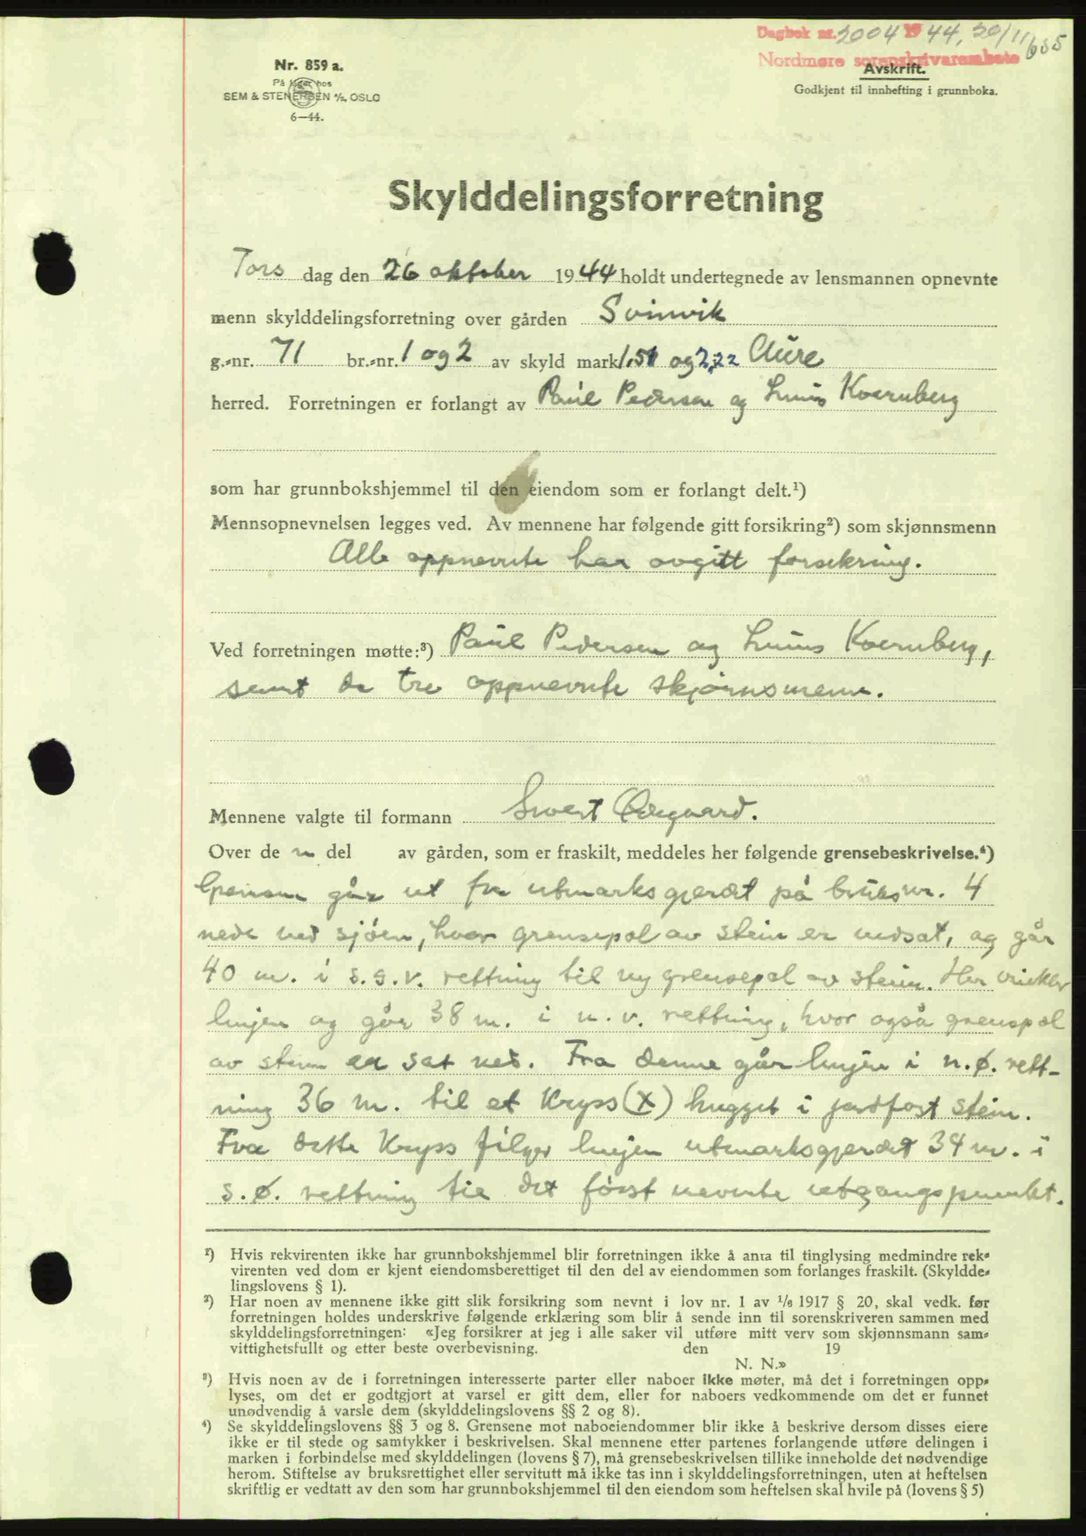 Dagbok nr. 2004 1944, 20/11 685
Nordmøre sorenskrivarembete
Avskrift.
Godkjent til innhefting i grunnboka.
Nr. 859 a.
På lager hos
SEM & STENERSEN A/S, OSLO
6—44.
Skylddelingsforretning
Tors dag den 26 oktober 1944 holdt undertegnede av lensmannen opnevnte
menn skylddelingsforretning over gården Svinvik
g.-nr. 71 br.-nr. 1 og 2 av skyld mark 1,51 og 2,22 Aure
herred. Forretningen er forlangt av Paul Pedersen og Kvernberg
som har grunnbokshjemmel til den eiendom som er forlangt delt.¹)
Mennsopnevnelsen legges ved. Av mennene har følgende gitt forsikring²) som skjønnsmenn
Alle oppnevnte har avgitt forsikring.
Ved forretningen møtte:³) Paul Pedersen og Kvernberg,
samt de tre oppnevnte skjønnsmenn.
Mennene valgte til formann Sivert Ødegaard.
Over de n del av gården, som er fraskilt, meddeles her følgende grensebeskrivelse.⁴)
Grensen går ut fra utmarksgjerdet på bruksnr. 4
nede ved sjøen, hvor grensepel av stein er nedsat, og går
40 m. i s.s.v. rettning til ny grensepel av stein. Her vinkler
linjen og går 38 m. i n.v. rettning, hvor også grensepel
av stein er sat ned. Fra denne går linjen i n.ø. rett-
ning 36 m. til et kryss (x) hugget i jordfast stein.
Fra dette kryss følger linjen utmarksgjerdet 34 m. i
s.ø. rettning til det først nevnte utgangspunkt.
¹) Hvis rekvirenten ikke har grunnbokshjemmel blir forretningen ikke å anta til tinglysing medmindre rek-
virenten ved dom er kjent eiendomsberettiget til den del av eiendommen som forlanges fraskilt. (Skyldde-
lingslovens § 1).
²) Har noen av mennene ikke gitt slik forsikring som nevnt i lov nr. 1 av 1/6 1917 § 20, skal vedk. før
forretningen holdes underskrive følgende erklæring som blir å sende inn til sorenskriveren sammen med
skylddelingsforretningen: «Jeg forsikrer at jeg i alle saker vil utføre mitt verv som skjønnsmann sam-
vittighetsfullt og etter beste overbevisning. den 19
N. N.»
³) Hvis noen av de i forretningen interesserte parter eller naboer ikke møter, må det i forretningen opp-
lyses, om det er godtgjort at varsel er gitt dem, eller for naboers vedkommende om det er funnet
unødvendig å varsle dem (skylddelingslovens §§ 2 og 8).
⁴) Se skylddelingslovens §§ 3 og 8. Grensene mot naboeiendommer blir ikke å beskrive dersom disses eiere
ikke er til stede og samtykker i beskrivelsen. Skal mennene etter partenes forlangende utføre delingen i
marken i forbindelse med skylddelingen (lovens § 7), må grensebeskrivelsen tillike inneholde det nødvendige
herom. Stiftelse av bruksrettighet eller servitutt må ikke tas inn i skylddelingsforretningen, uten at heftelsen
skriftlig er vedtatt av den som har grunnbokshjemmel til den eiendom som heftelsen skal hvile på (lovens § 5)